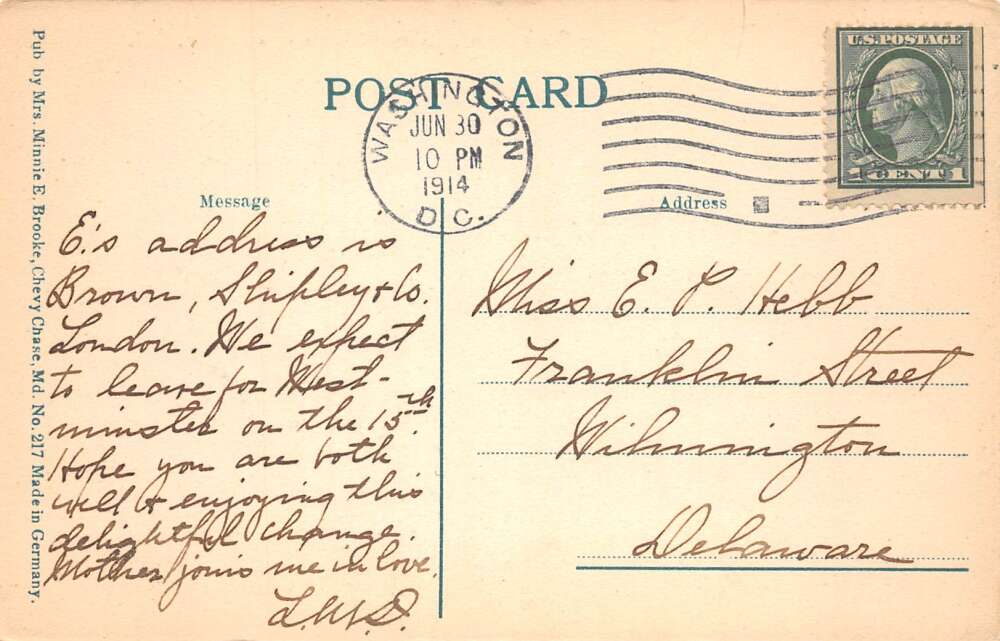 POST CARD
WASHINGTON
JUN 30
10 PM
1914
D.C.
U.S. POSTAGE
1 CENT 1
Message
E.'s address is
Brown, Shipley & Co.
London. We expect
to leave for West-
minster on the 15th.
Hope you are both
well & enjoying this
delightful change.
Mother joins me in love.
Address
Miss E. P. Hebb
Franklin Street
Wilmington
Delaware
Pub by Mrs. Minnie E. Brooke, Chevy Chase, Md. No. 217 Made in Germany.